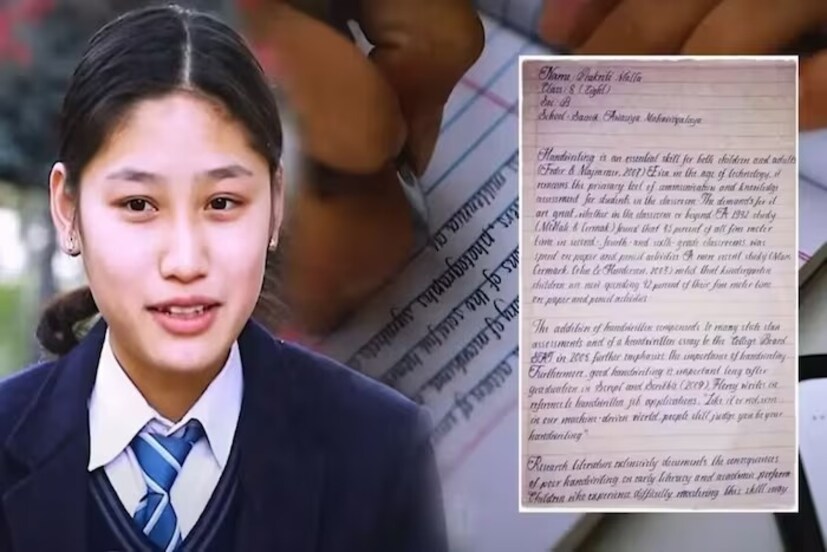 Name: Prakriti Malla
Class: 8 (Eight)
Sec: B
School:
Handwriting is an essential skill for both children and adults
(Feder & Majnemer, 2007) Even in the age of technology, it
remains the primary tool of communication and knowledge
assessment for students in the classroom. The demands for it
are great, whether in the classroom or beyond. A 1992 study
(McHale & Cermak) found that 85 percent of all fine motor
time in second- fourth- and sixth-grade classrooms was
spent on paper and pencil activities. A more recent study (Marr,
Cermark, Cohn & Henderson, 2003) noted that kindergarten
children are now spending 42 percent of their fine motor time
on paper and pencil activities.
The addition of handwritten components to many state
assessments and of a handwritten essay to the College Board
SAT in 2005 further emphasize the importance of handwriting
Furthermore, good handwriting is important long after
graduation. In Script and Scribble (2009), Florey writes in
reference to handwritten job applications, "Like it or not, even
in our machine-driven world, people still judge you by your
handwriting"
Research literature extensively documents the consequences
of poor handwriting on early literacy and academic perform
Children who experience difficulty mastering this skill may